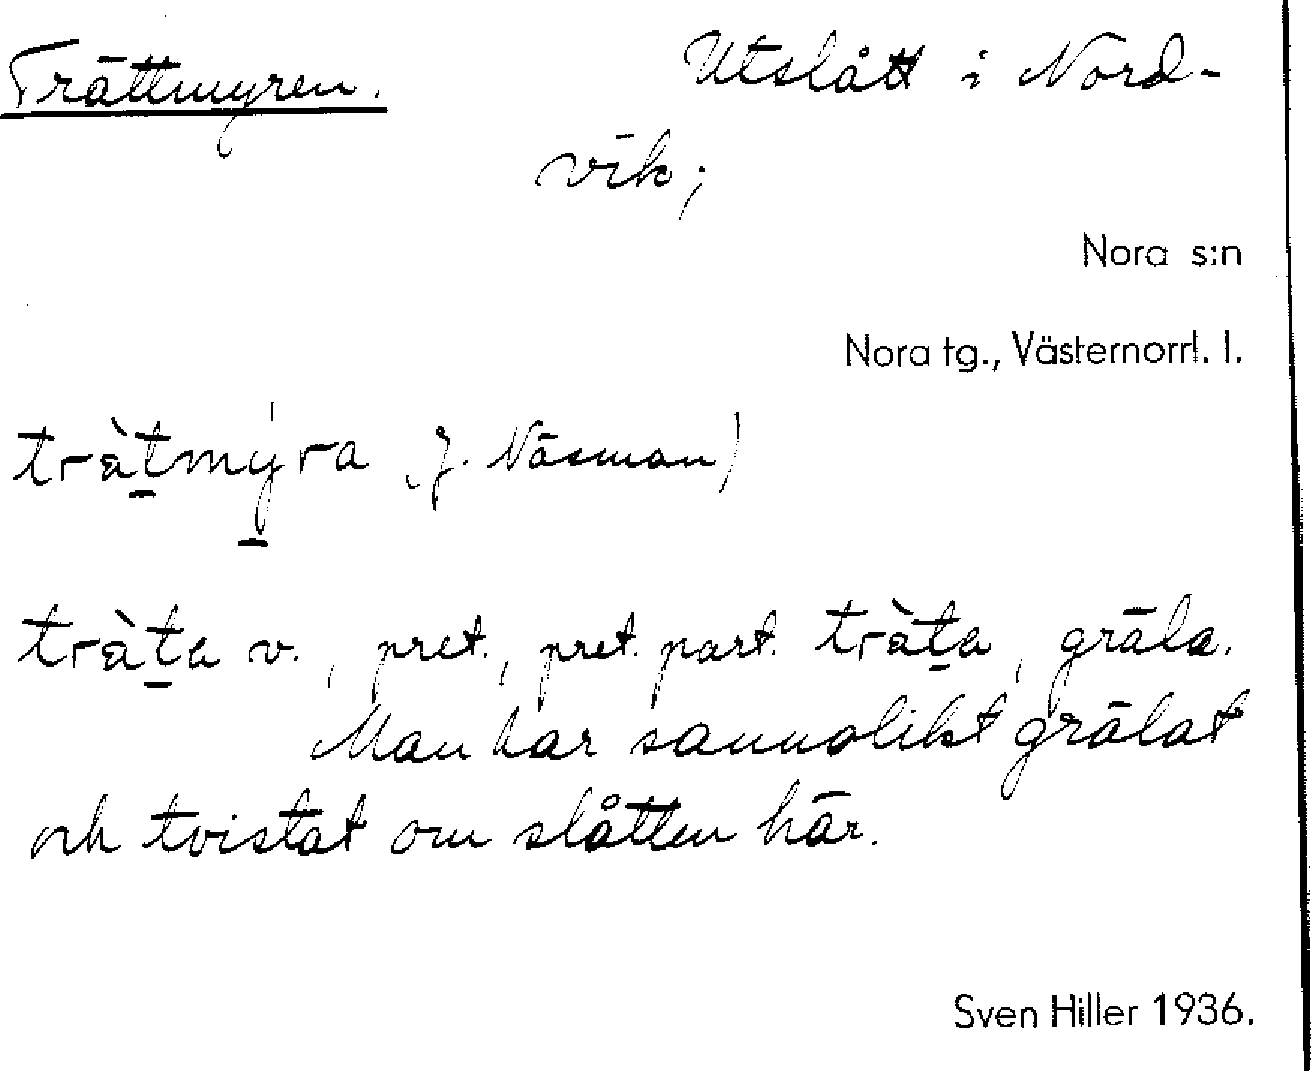 Trättmyren. Utslått i Nord-
vik;
Nora s:n
Nora tg., Västernorrl. l.
tràtmýra (J. Näsman)
tràta v., pret., pret. part. tràta, gräla.
Man har sannolikt grälat
och tvistat om slåtten här.
Sven Hiller 1936.